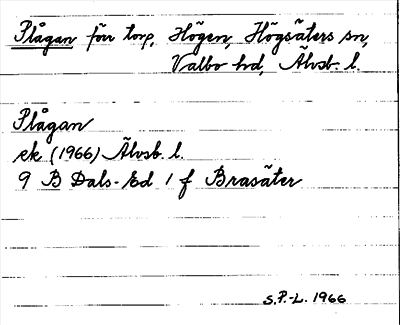 Plågan förr torp, Högen, Högsäters sn,
Valbo hd, Älvsb. l.
Plågan
ek (1966) Älvsb. l.
9 B Dals-Ed 1 f Brasäter
S.P.-L. 1966